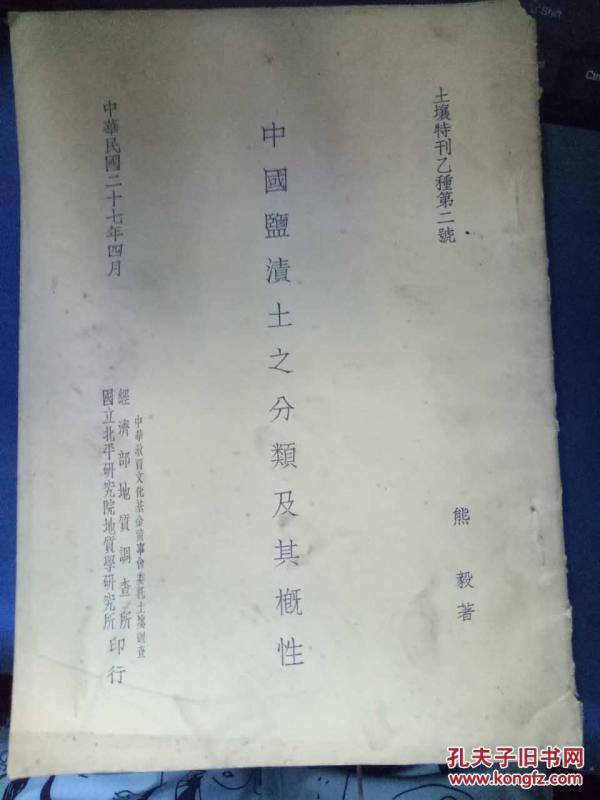 土壤特刊乙種第二號
熊毅著
中國鹽漬土之分類及其概性
中華民國二十七年四月
中華教育文化基金董事會委托土壤調查
經濟部地質調查所
國立北平研究院地質學研究所
印行
Shift
孔夫子旧书网
www.kongfz.com